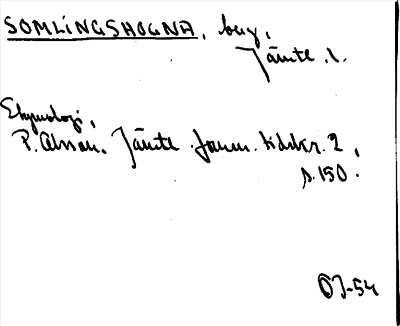 SOMLINGSHOGNA, berg,
Jämtl. l.
Etymologi,
P. Olsson. Jämtl. fornm. tidskr. 2,
s. 150.
OJ-54